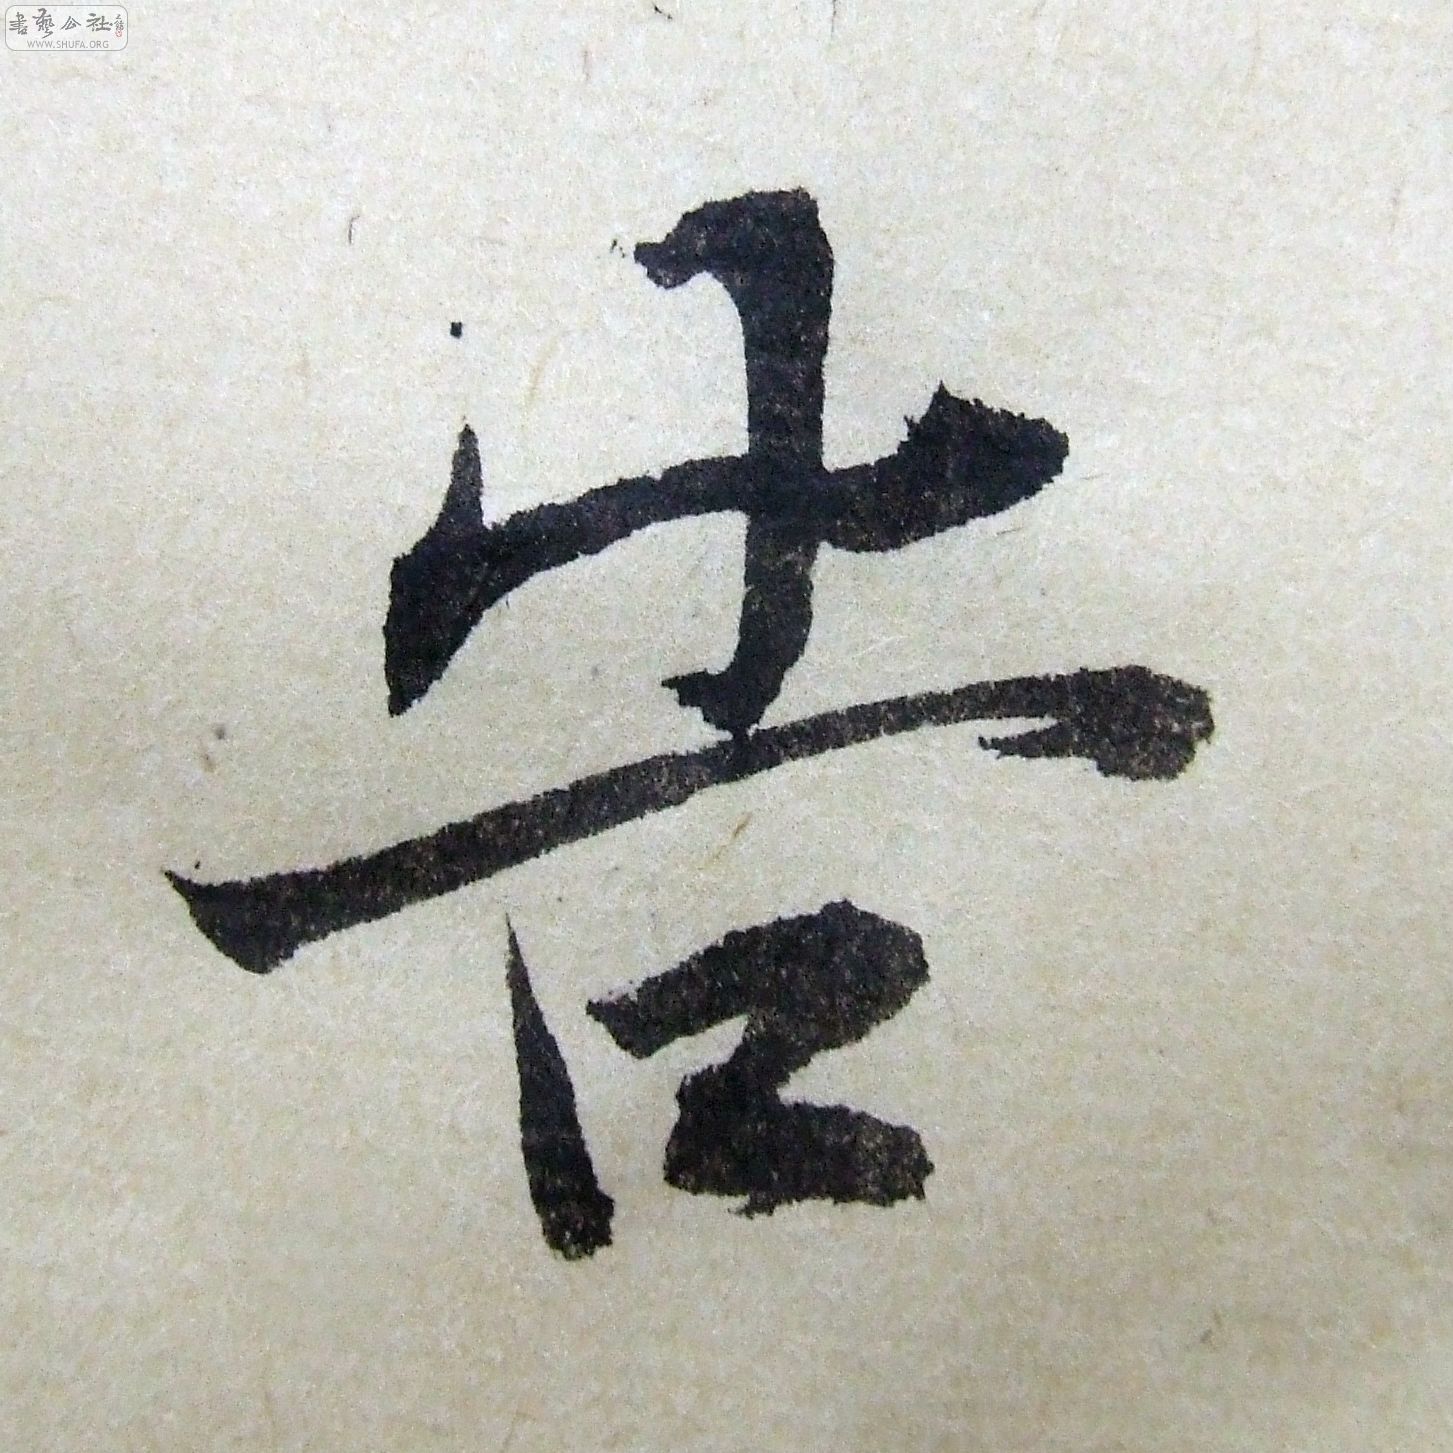 書藝公社
WWW.SHUFA.ORG
告